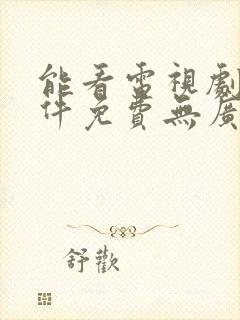 能看電視劇
件免費無廣
舒歡